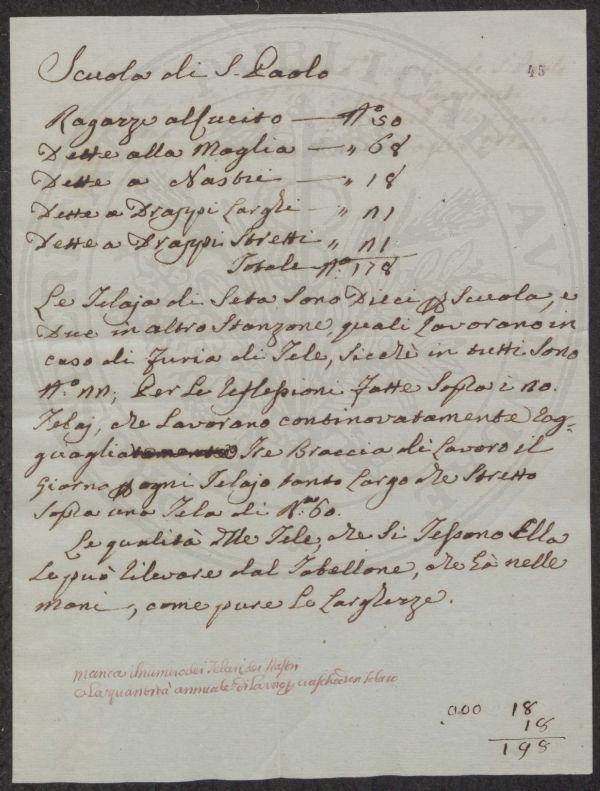 45
Scuola di S. Paolo
Ragazze al Cucito — N.o 50
Dette alla Maglia — „ 68
Dette a Nastri — „ 18
Dette a Drappi Larghi — „ 21
Dette a Drappi Stretti „ 21
Totale N.o 178
Le Telaja di Seta Sono Dieci p Scuola, e
Due in altro Stanzone, quali Lavorano in
caso di Furia di Tele, Sicchè in tutti Sono
N.o 22; Per Le Riflessioni Fatte Sopra i 20.
Telaj, che Lavorano continovatamente Rag=
guaglia Tre Braccia di Lavoro il
Giorno p ogni Telajo tanto Largo che Stretto
Sopra una Tela di N.o 60.
Le qualità dlle Tele, che Si Tessono Ella
Le può rilevare dal Tabellone, che hà nelle
mani, come pure Le Larghezze.
manca il numero dei Telari dei Nastri
e La quantità annuale di Lavoro p ciaschedun Telaro
000 18
18
198